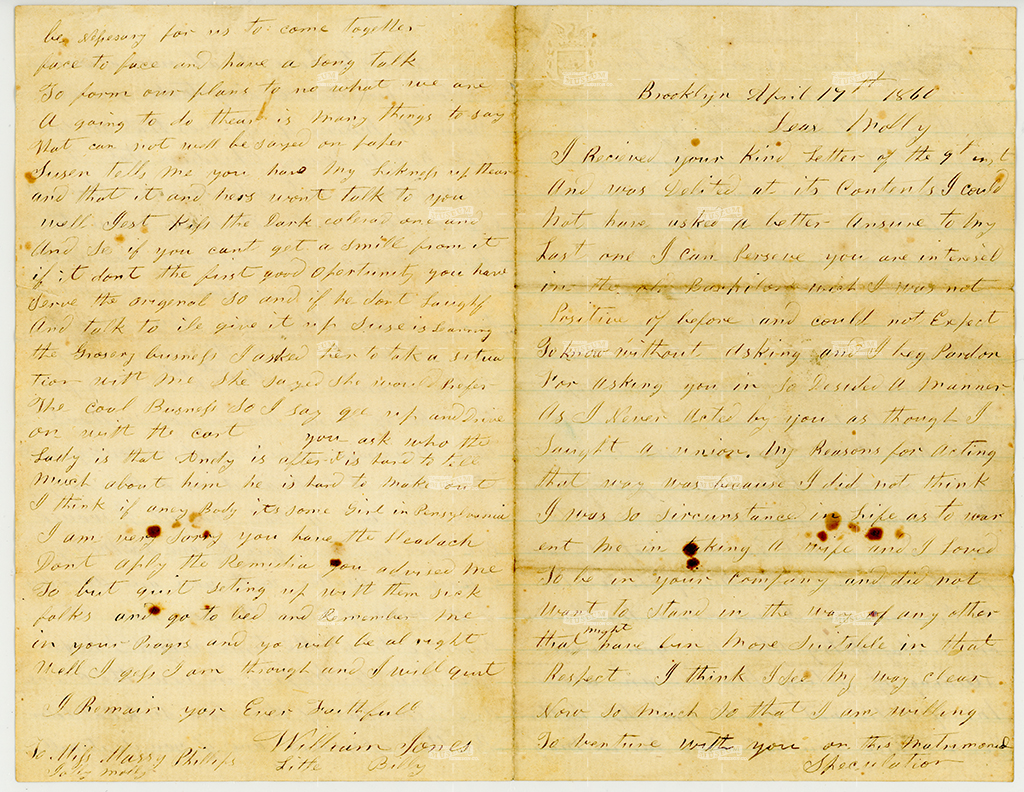 be nesesary for us to come together
face to face and have a long talk
To form our plans to no what we are
A going to do thear is many things to say
that can not well be sayed on paper
Susen tells me you have my likness up thear
and that it and hers wont talk to you
well Jest kiss the Dark colored one and
And se if you cant get a smile from it
if it dont the first good oportunity you have
Serve the origenal so and if he dont laugh
And talk to ile give it up Suse is learning
the Grosery busness I asked her to take a situa
tion with me She sayed she would Prefer
The Coal Busness So I say gee up and Drive
on with the cart you ask who the
Lady is that Andy is after it is hard to tell
much about him he is hard to make out
I think if aney Body its some Girl in Pensylvania
I am very Sorry you have the Headach
Dont aply the Remidia you advised me
To but quit seting up with them sick
folks and go to bed and Remember me
in your Prayrs and ya will be al right
Well I gess I am through and I will quit
I Remain yor Ever Faithfull
William Jones
Little Billy
To Miss Marry Phillips
Brooklyn April 17th 1860
Dear Molly
I Recieved your Kind Letter of the 9th inst
And was Delited at its Contents I could
Not have asked a better Ansure to My
Last one I can Perseve you are interesed
in the wich I was not
Positive of before and could not Expect
To know without asking and I beg Pardon
For asking you in So Desided A Manner
As I Never Acted by you as though I
Saught a union. My Reasons for Acting
that way was because I did not think
I was so sircunstance in Life as to war
ent Me in taking A wife and I Loved
To be in your Company and did not
Want to Stand in the way of any other
that might have ben More Suitible in that
Respect I think I See My way clear
Now So Much So that I am willing
To venture with you on this Matrimoneal
Speculation